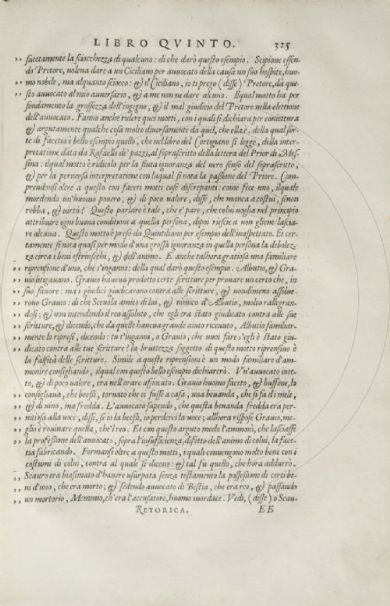 LIBRO QVINTO. 325
facetamente la sciocchezza di qualcuno: di che darò questo esempio. Scipione essen-
do Pretore, volena dare a un Ciciliano per auuocato della causa un suo hospite, huo-
mo nobile, ma alquanto sciocco: & il Ciciliano, io ti prego (disse) Pretore, dà que-
sto auuocato al mio auuersario, & a me non ne dare alcuno. Il qual motto ha per
fondamento la grossezza dell'ingegno, & il mal giudicio del Pretore nella elettione
dell'auuocato. Fanno anche ridere quei motti, con i quali si dichiara per coniettura
& argutamente qualche cosa molto diuersamente da quel, che ella è. della qual sor-
te di facetia è bello esempio quello, che nel libro del Cortegiano si legge, della inter-
pretatione data da Rafaello de' pazzi, al soprascritto della lettera del Prior di Mes-
sina: il qual motto è ridicolo per la finta ignoranza del uero senso del soprascritto,
& per la peruersa interpretatione con la qual si nota la passione del Priore. Com-
prendensi oltre a questo con faceti motti cose discrepanti: come fece uno, il quale
mordendo un'huomo pouero, & di poco ualore, disse, che manca a costui, senon
robba, & uirtù? Questo parlare è tale, che e' pare, che colui uoglia nel principio
attribuire ogni buona conditione a quella persona, dipoi riesce a non gliene lascia-
re alcuna. Questo motto è preso da Quintiliano per esempio dell'inaspettato. Et cer-
tamente si nota quasi per modo d'una grossa ignoranza in quella persona la debolez-
za circa i beni estrinsechi, & dell'animo. E anche tal hora gratiosa una familiare
riprensione d'uno, che s'inganna: della qual darò questo esempio. Albutio, & Gra-
nio litigauano. Granio hauena prodotte certe scritture per prouare un certo che, in
suo fauore: ma i giudici giudicarono contra alle scritture, & nondimeno assolue-
rono Granio: di che Sceuola amico di lui, & nimico d'Albutio, molto rallegran-
dosi; & non intendendo il reo assoluto, che egli era stato giudicato contra alle sue
scritture, & dicendo, che da quelle haueua grande aiuto riceuuto, Albutio familiar-
mente lo riprese, dicendo: tu t'inganni, o Granio, che uuoi fare? egli è stato giu-
dicato contra alle tue scritture: la bruttezza soggetto di questo motto riprensiuo è
la falsità delle scritture. Simile a queste riprensioni è un modo familiare d'am-
monire consigliando, il qual con questo bello esempio dichiarerò. Un'auuocato inet-
to, & di poco ualore, era nell'orare affiocato. Granio huomo faceto, & buffone, lo
consigliaua, che beesse, tornato che ei fusse a casa, una beuanda, che si fa di mele,
& di uino, ma fredda. L'auuocato sapendo, che questa beuanda fredda era per-
nitiosa alla uoce, disse, se io la beessi, io perderei la uoce; allhora rispose Granio, me-
glio è rouinare quella, che'l reo. Et con questo arguto modo l'ammonì, che lasciasse
la professione dell'auuocato, sopra l'insufficienza, difetto dell'animo di colui, la face-
tia fabricando. Formansi oltre a questo motti, i quali conuengono molto bene con i
costumi di colui, contra al quale si dicono: & tal fu quello, che hora addurrò.
Scauro era biasimato d'hauere usurpata senza testamento la possessione di certi be-
ni d'uno, che era morto; & sedendo auuocato di Bestia, che era reo, & passando
un mortorio, Memmio, ch'era l'accusatore, huomo mordace. Vedi, (disse) o Scau-
RETORICA. EE